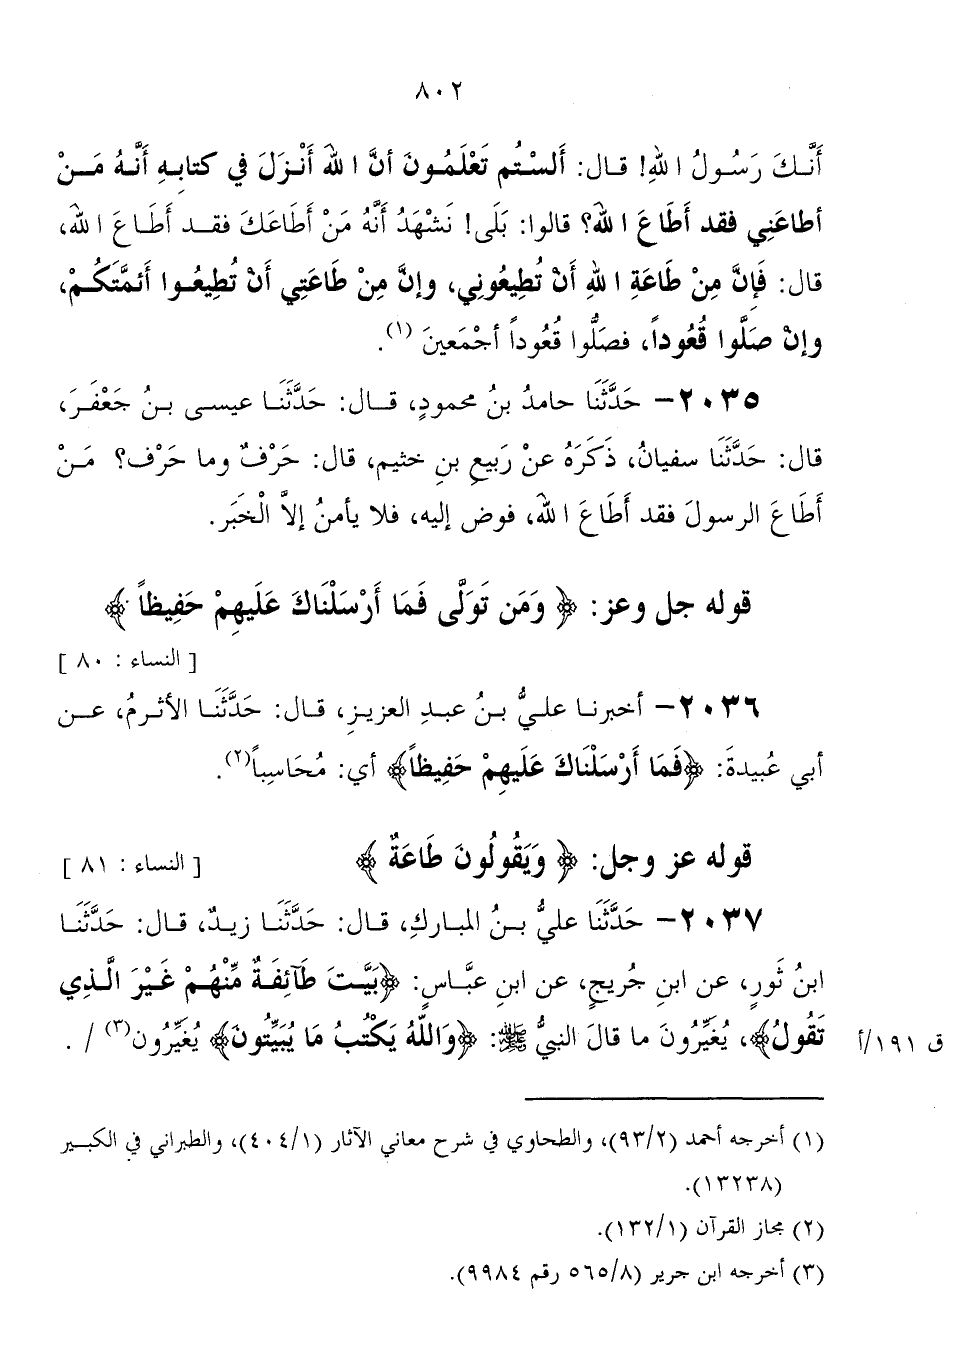 ٨٠٢
أَنَّكَ رَسُولُ اللهِ! قال: أَلسْتُم تَعْلَمُونَ أنَّ اللهَ أَنْزَلَ في كتابِهِ أَنَّهُ مَنْ
أطاعَنِي فقد أَطَاعَ اللهَ؟ قالوا: بَلَى! نَشْهَدُ أَنَّهُ مَنْ أَطَاعَكَ فقد أَطَاعَ اللهَ،
قال: فَإِنَّ مِنْ طَاعَةِ اللهِ أَنْ تُطِيعُونِي، وإنَّ مِنْ طَاعَتِي أَنْ تُطِيعُوا أَئمَّتَكُمْ،
وإنْ صَلَّوا قُعُوداً، فصَلُّوا قُعُوداً أجْمَعينَ (١).
٢٠٣٥- حَدَّثَنَا حامدُ بنُ محمودٍ، قال: حَدَّثَنَا عيسى بنُ جَعْفَرَ،
قال: حَدَّثَنَا سفيانُ، ذَكَرَهُ عنْ رَبيعِ بنِ خثيم، قال: حَرْفٌ وما حَرْف؟ مَنْ
أَطَاعَ الرسولَ فقد أَطَاعَ اللهَ، فوض إليه، فلا يأمنُ إلاَّ الْخَبَر.
قوله جل وعز: ﴿ وَمَن تَوَلَّى فَمَا أَرْسَلْنَاكَ عَلَيهِمْ حَفِيظاً ﴾
[ النساء : ٨٠ ]
٢٠٣٦- أخبرنا عليُّ بنُ عبدِ العزيزِ، قال: حَدَّثَنَا الأثرمُ، عن
أبي عُبيدةَ: ﴿فَمَا أَرْسَلْنَاكَ عَلَيهِمْ حَفِيظاً﴾ أي: مُحَاسِباً(٢).
قوله عز وجل: ﴿ وَيَقُولُونَ طَاعَةٌ ﴾ [ النساء : ٨١ ]
٢٠٣٧- حَدَّثَنَا عليُّ بنُ المباركِ، قال: حَدَّثَنَا زيدٌ، قال: حَدَّثَنَا
ابنُ ثَورٍ، عن ابنِ جُريجٍ، عن ابنِ عبَّاسٍ: ﴿بَيَّتَ طَآئِفَةٌ مِّنْهُمْ غَيْرَ الَّذِي
تَقُولُ﴾، يُغَيِّرُونَ ما قالَ النبيُّ ﷺ: ﴿وَاللهُ يَكْتُبُ مَا يُبَيِّتُونَ﴾ يُغَيِّرُون(٣) / . ق ١٩١/أ
(١) أخرجه أحمد (٩٣/٢)، والطحاوي في شرح معاني الآثار (٤٠٤/١)، والطبراني في الكبير
(١٣٢٣٨).
(٢) مجاز القرآن (١٣٢/١).
(٣) أخرجه ابن جرير (٥٦٥/٨ رقم ٩٩٨٤).